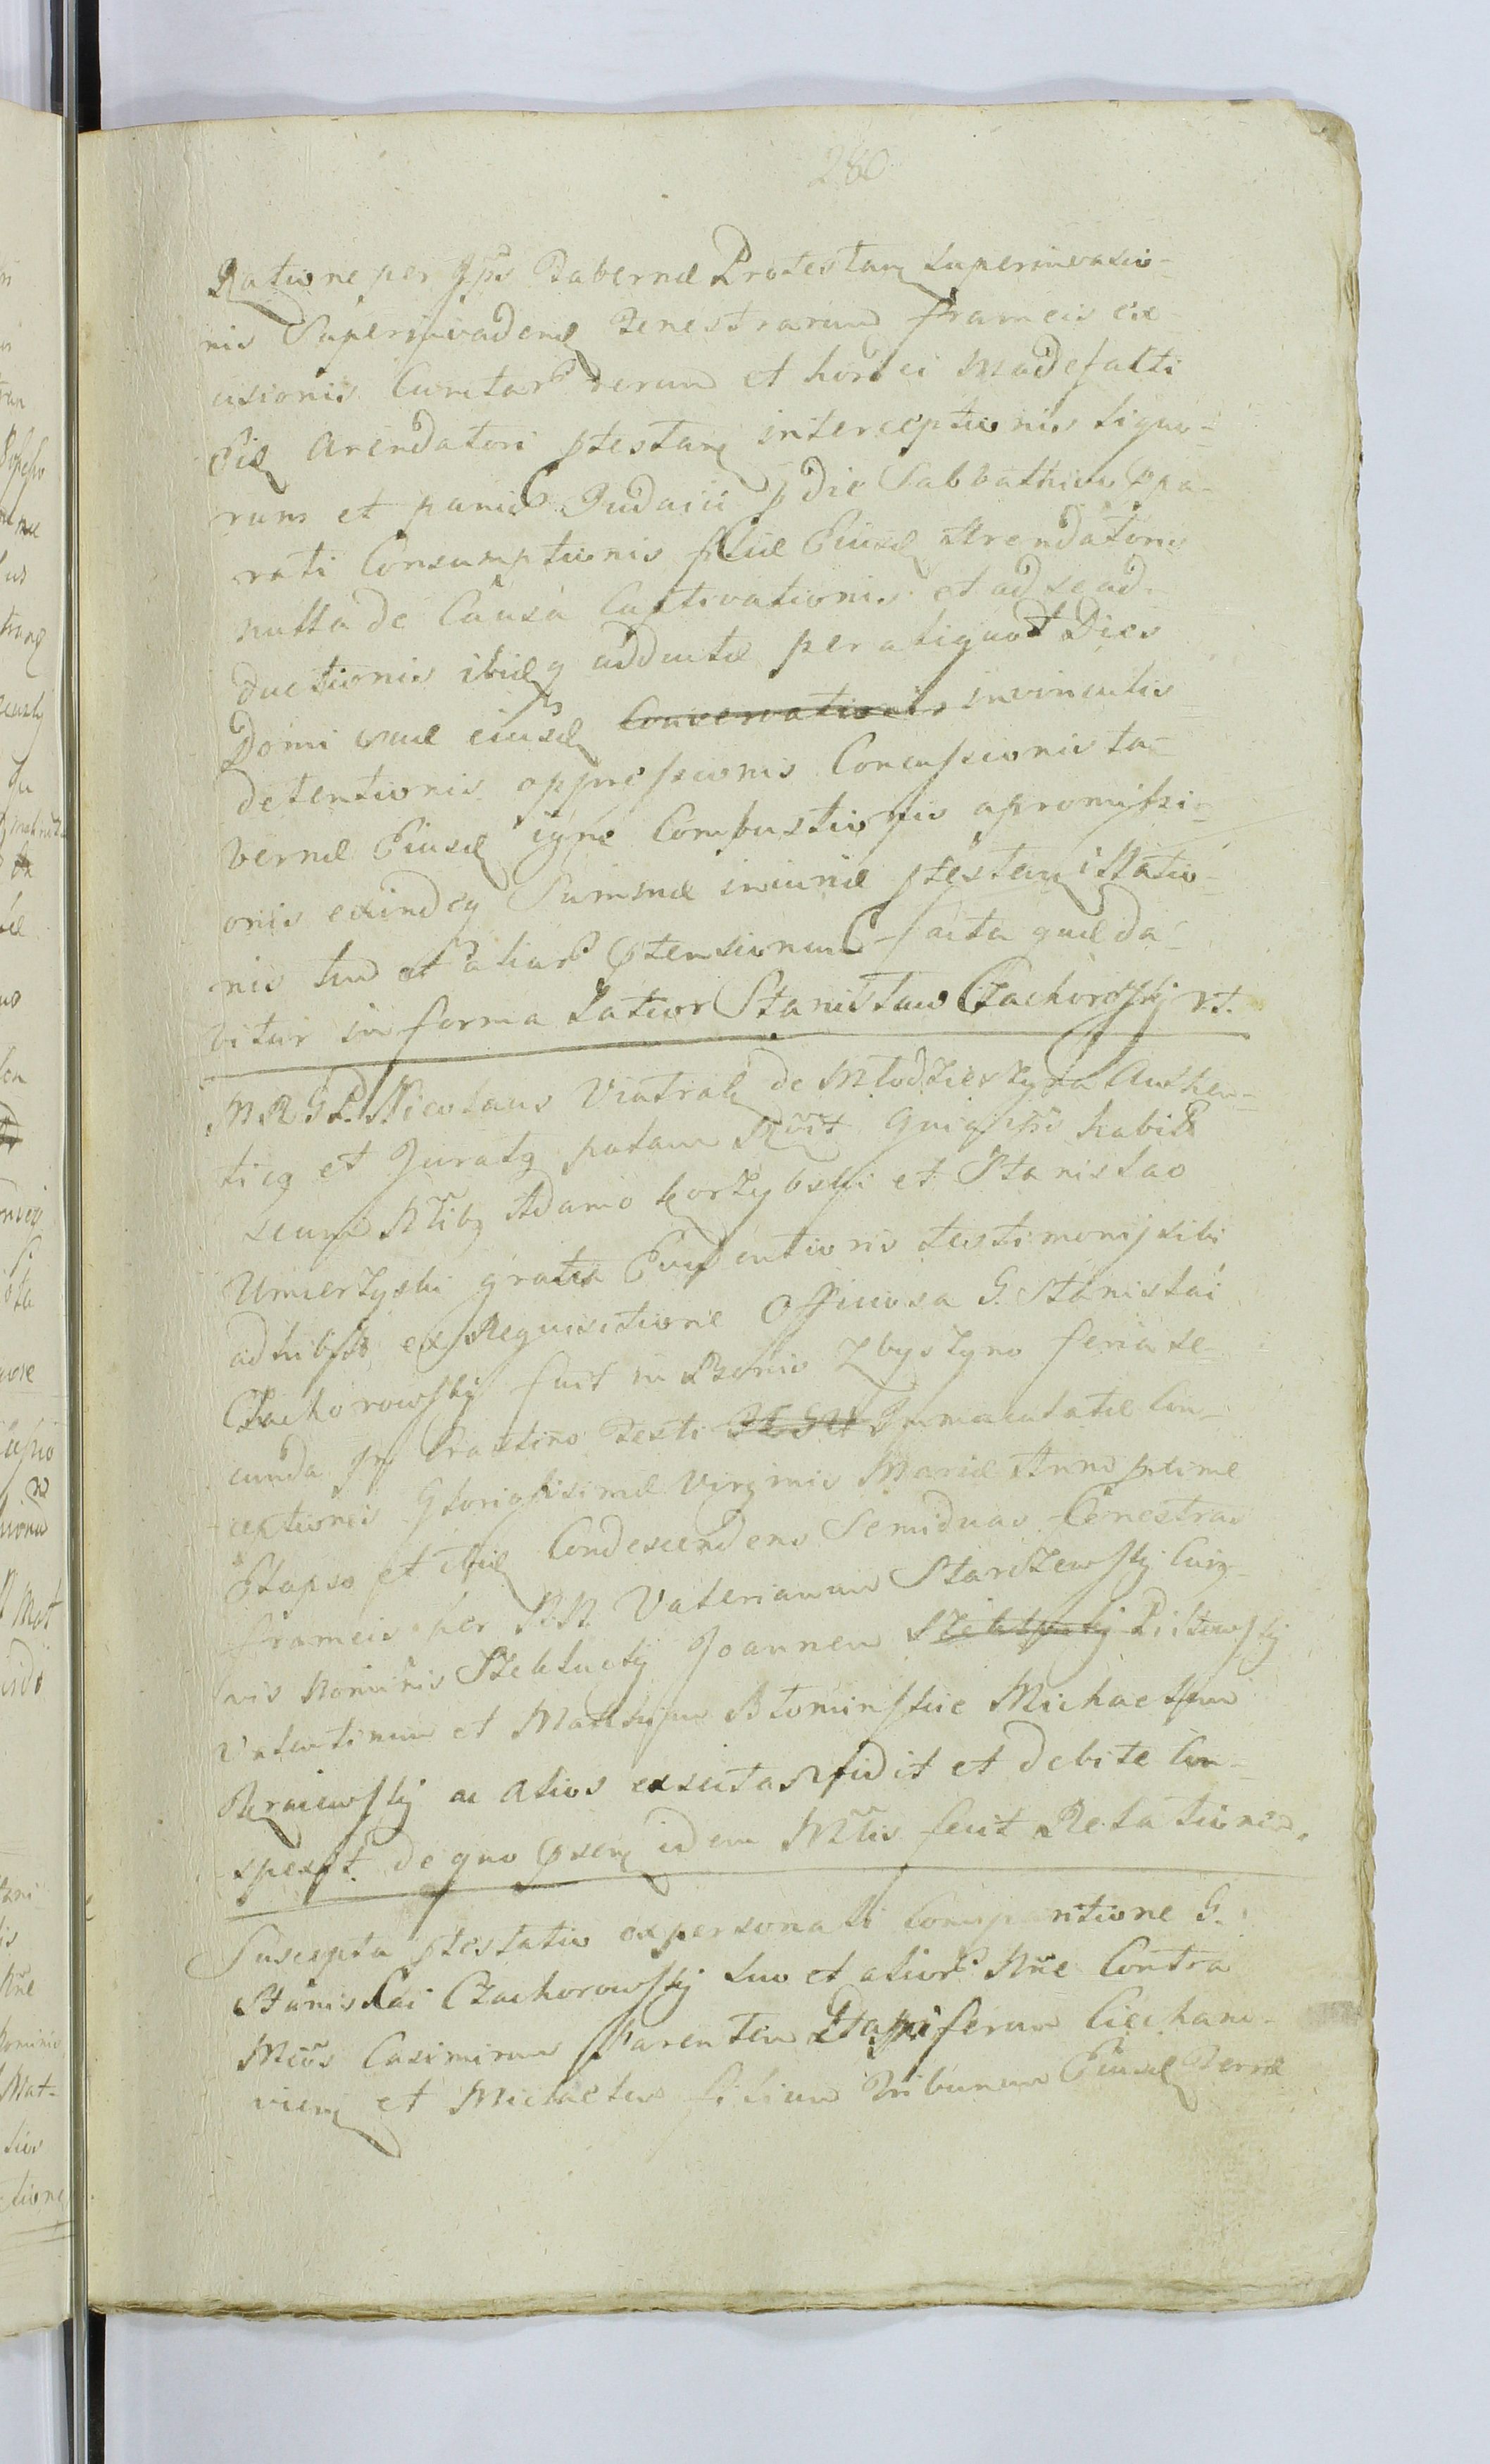 280
Ratione per Ips Tabernæ Protestan Superinvasio-
nis Superinvadend fenestrarum frameis ex-
cisionis Cunctar rerum et hordei Madefacti
Eid Arendatori ptestan interceptionis liquo-
rum et panis Judaici p die Sabbathino ppa-
rati Consumptionis filiæ Eiusd Arendatoris
nulla de Causa Captivationis et ad se ad-
ductionis ibidq adductæ per aliquot Dies
Domi suæ eiusd Conservationis in vinculis
detentionis oppressionis Concussionis ta-
bernæ Eiusd igne Combustionis apromissi-
onis exindeq Summæ iniuriæ ptestan illatio-
nis tum et aliar ptensionum facta quæ da-
bitur in forma Latior Stanislaus Czachorowskj rt.
M. R. G. L. Nicolaus Viatrak de Mlodzieszyna Authen-
ticq et Juratq palam Rvit Quia ipse habitis
secum Nlibq Adamo korzybski et Stanislao
Umierzyski gratia Evidentioris testimonij sibi
adhibitis ex Requisitione Officiosa G. Stanislai
Czachorowskj fuit in Bonis Zbyszyno feria se-
cunda in Crastino Festi JESU Immaculatæ Con-
ceptionis Gloriosissimæ Virginis Mariæ Anno pxime
Elapso et ibid Condescendens Semiduas fenestras
frameis per NN Valerianum Starczewskj Cuiq-
vis Nominis Szeluckj Joannem Piltowskj
Valentinum et Mathiam Blominskie Michaelem
Berniewskj ac Alios excissas vidit et debite Con-
spexit de quo psen idem Mlis fecit Relationem.
Suscepta ptestatio ex personali Comparitione G.
Stanislai Czachorowskj suo et alior Nne Contra
Mcos Casimirum Parentem Dapiferum Ciechano-
vien et Michaelem filium Tribunum Eiusd Terræ